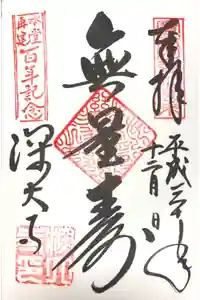 奉拝
平成三十年
十二月 日
無量寿
本堂再建
百年記念
深大寺